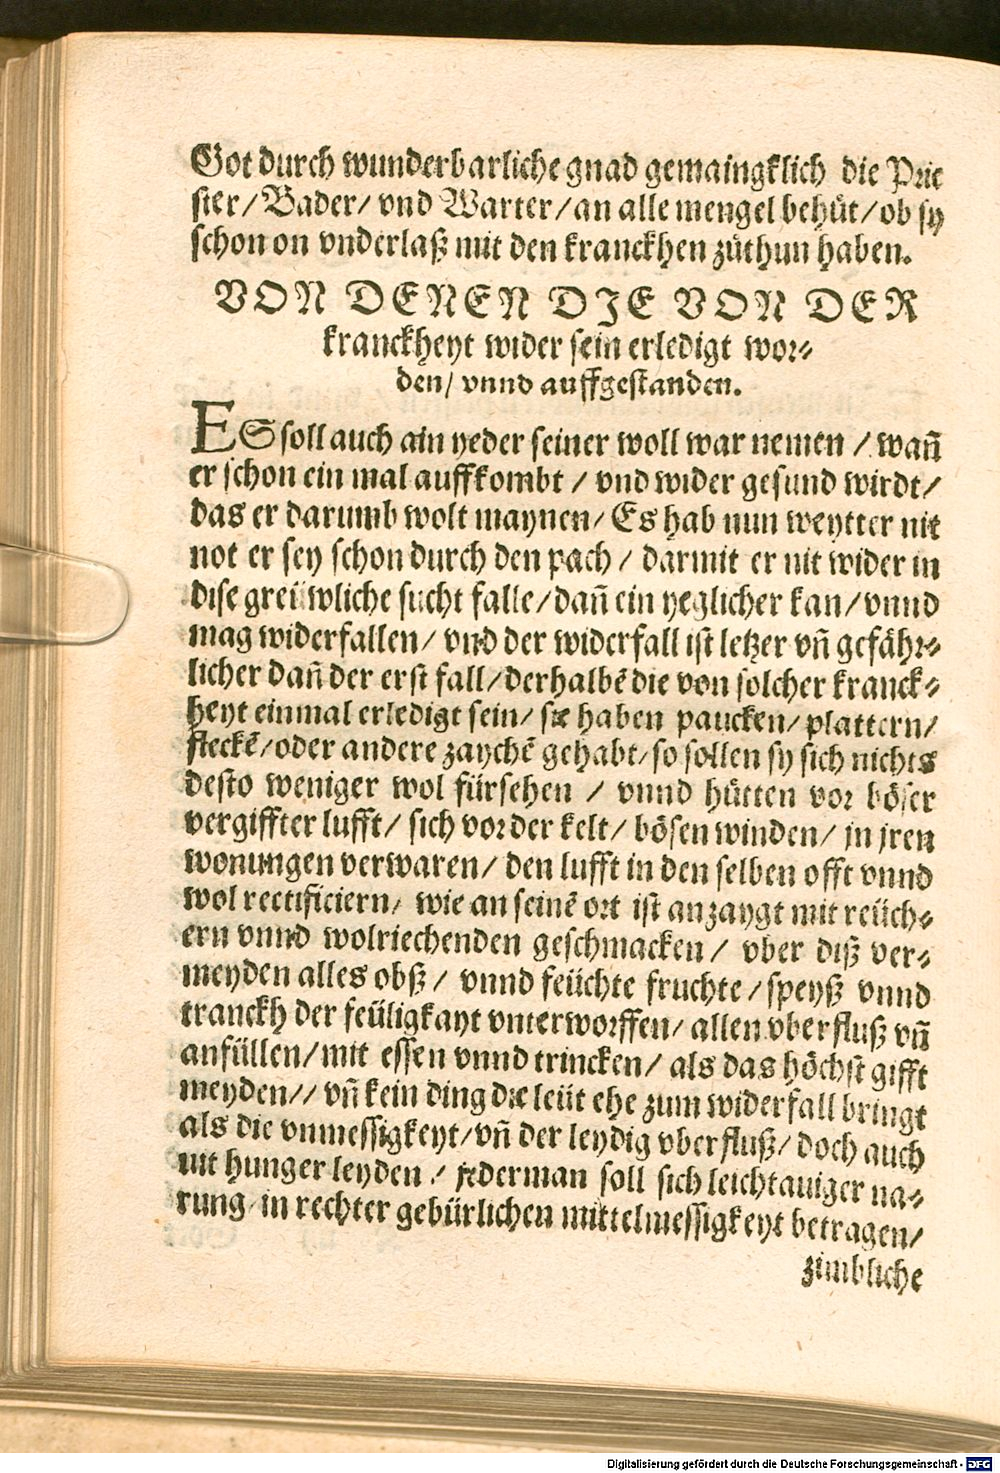 Got durch wunderbarliche gnad gemaingklich die Prie
ster/ Bader/ vnd Warter/ an alle mengel behüt/ ob sy
schon on vnderlaß mit den kranckhen züthun haben.
VON DENEN DIE VON DER
kranckheyt wider sein erledigt wor⸗
den/ vnnd auffgestanden.
ES soll auch ain yeder seiner woll war nemen / wañ
er schon ein mal auffkombt / vnd wider gesund wirdt/
das er darumb wolt maynen/ Es hab nun weytter nit
not er sey schon durch den pach / darmit er nit wider in
dise greüwliche sucht falle/ dañ ein yeglicher kan/ vnnd
mag widerfallen/ vnd der widerfall ist letzer vñ gefähr⸗
licher dañ der erst fall/ derhalbē die von solcher kranck⸗
heyt einmal erledigt sein/ sie haben paucken/ plattern/
fleckē/ oder andere zaychē gehabt/ so sollen sy sich nichts
desto weniger wol fürsehen / vnnd hütten vor böser
vergiffter lufft/ sich vor der kelt/ bösen winden/ jn jren
wonungen verwaren/ den lufft in den selben offt vnnd
wol rectificiern/ wie an seinē ort ist anzaygt mit reüch⸗
ern vnnd wolriechenden geschmacken/ vber diß ver⸗
meyden alles obß / vnnd feüchte fruchte / speyß vnnd
tranckh der feüligkayt vnterworffen/ allen vberfluß vñ
anfüllen/ mit essen vnnd trincken/ als das höchst gifft
meyden// vñ kein ding die leüt ehe zum widerfall bringt
als die vnmessigkeyt/ vñ der leydig vberfluß/ doch auch
nit hunger leyden / jederman soll sich leichtauiger na⸗
rung in rechter gebürlichen mittelmessigkeyt betragen/
zimbliche
Digitalisierung gefördert durch die Deutsche Forschungsgemeinschaft - DFG